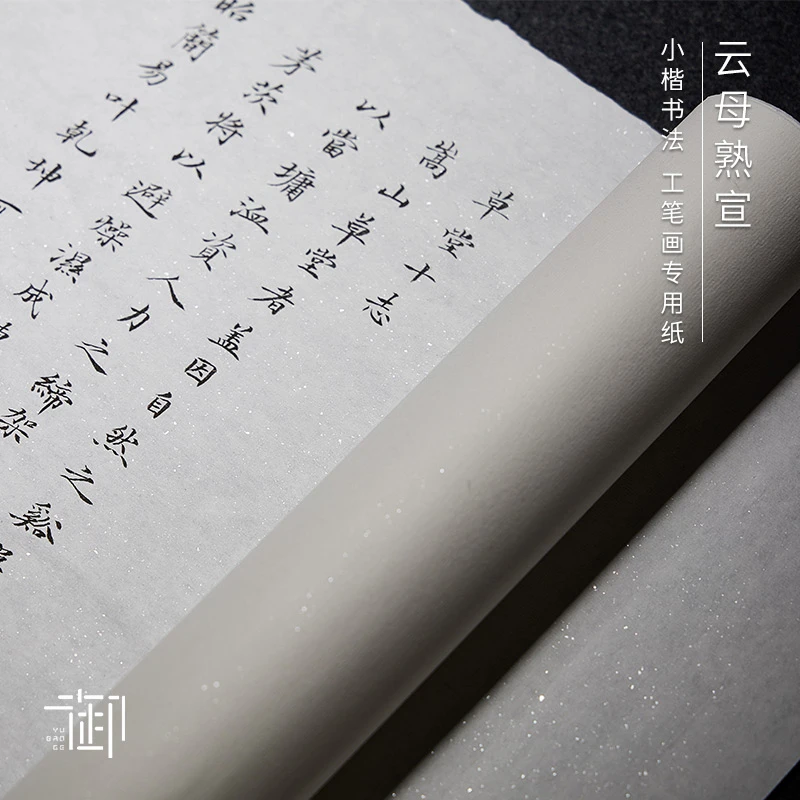 云母熟宣
小楷书法 工笔画专用纸
草堂十志
嵩山草堂者盖因自然之谿
以當墉洫資人力之締架
茅茨將以避燥濕成
昭簡易叶乾坤
御
YU
BAO
GE